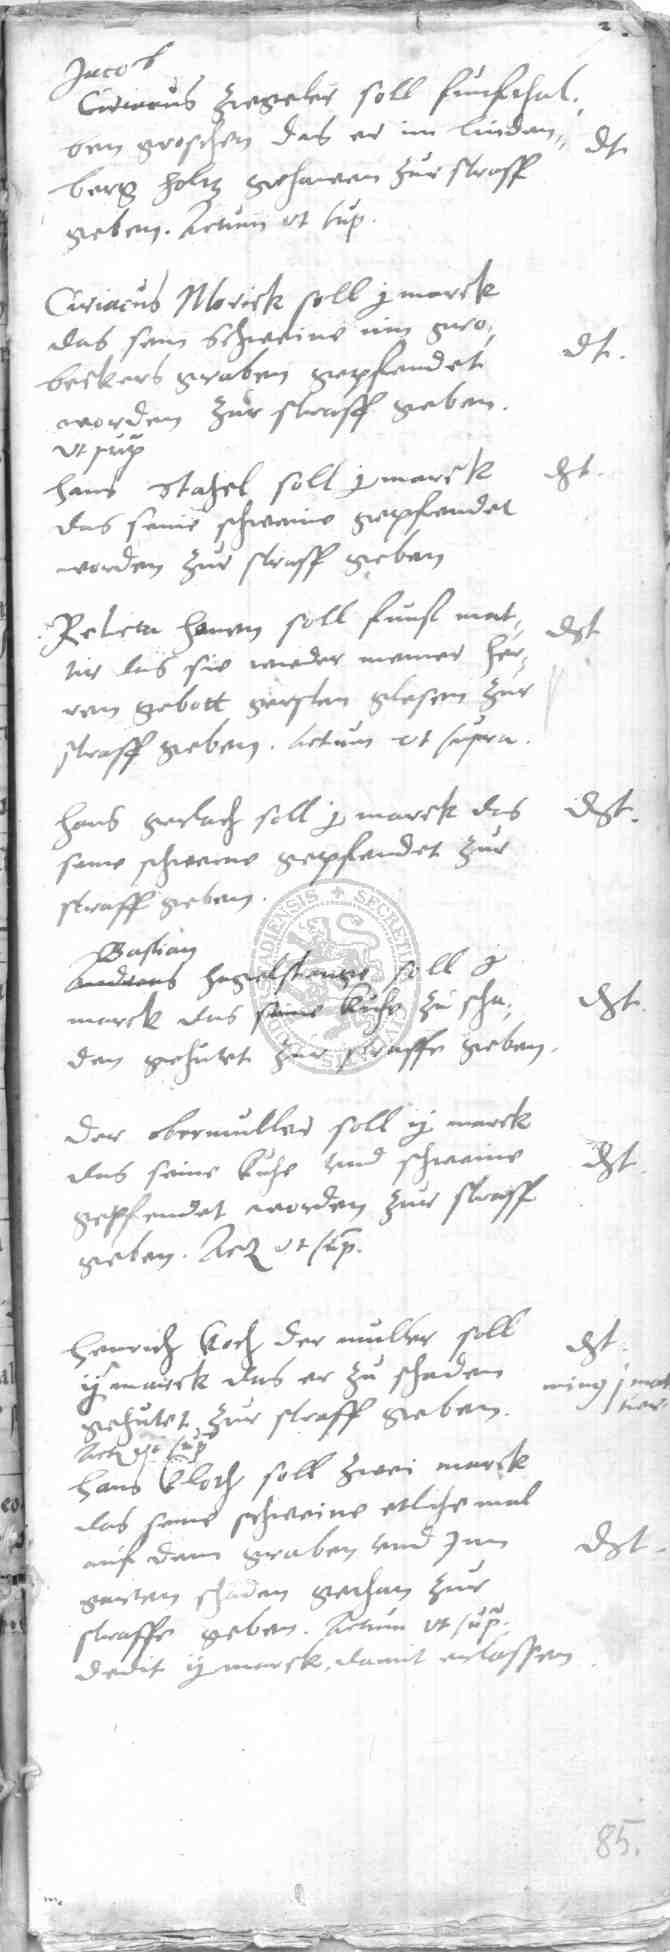 2.
Jacob
Ciriacus Ziegeler soll funfthal,
ben groschen das er im linden,, dt
berg holtz gehawen zur straff
geben. Actum ut sup.
Ciriacus Morick soll j marck
das sein Schweine im gro,
beckers graben gepfendet dt.
worden zur straff geben.
ut sup
hans Stahel soll j marck dt.
das seine schweine gepfendet
worden zur straff geben
Relicta hanen soll funf mat, dt
tir das sie wieder meiner her,
ren gebott gersten glesen zur
straff geben. Actum ut supra.
hans gerlach soll j marck das dt.
seine schweine gepfendet zur
straff geben.
Bastian
Andreas hegelstange soll j
marck das seine kuhe zu scha, dt.
den gehutet zur straffe geben.
Der obermuller soll ij marck
das seine kuhe und schweine dt.
gepfendet worden zur straff
geben. Act ut sup.
Henrich Koch der muller soll dt.
ij marck das er zu schaden ming j mat
gehutet zur straff geben. tier
Act ut sup
hans Kloch soll zwei marck
das seine schweine etliche mal
auf dem graben und Inn dt.
garten schaden gethan zur
straffe geben. Actum ut sup.
dedit ij marck, damit erlassen.
85.
SECRETUM